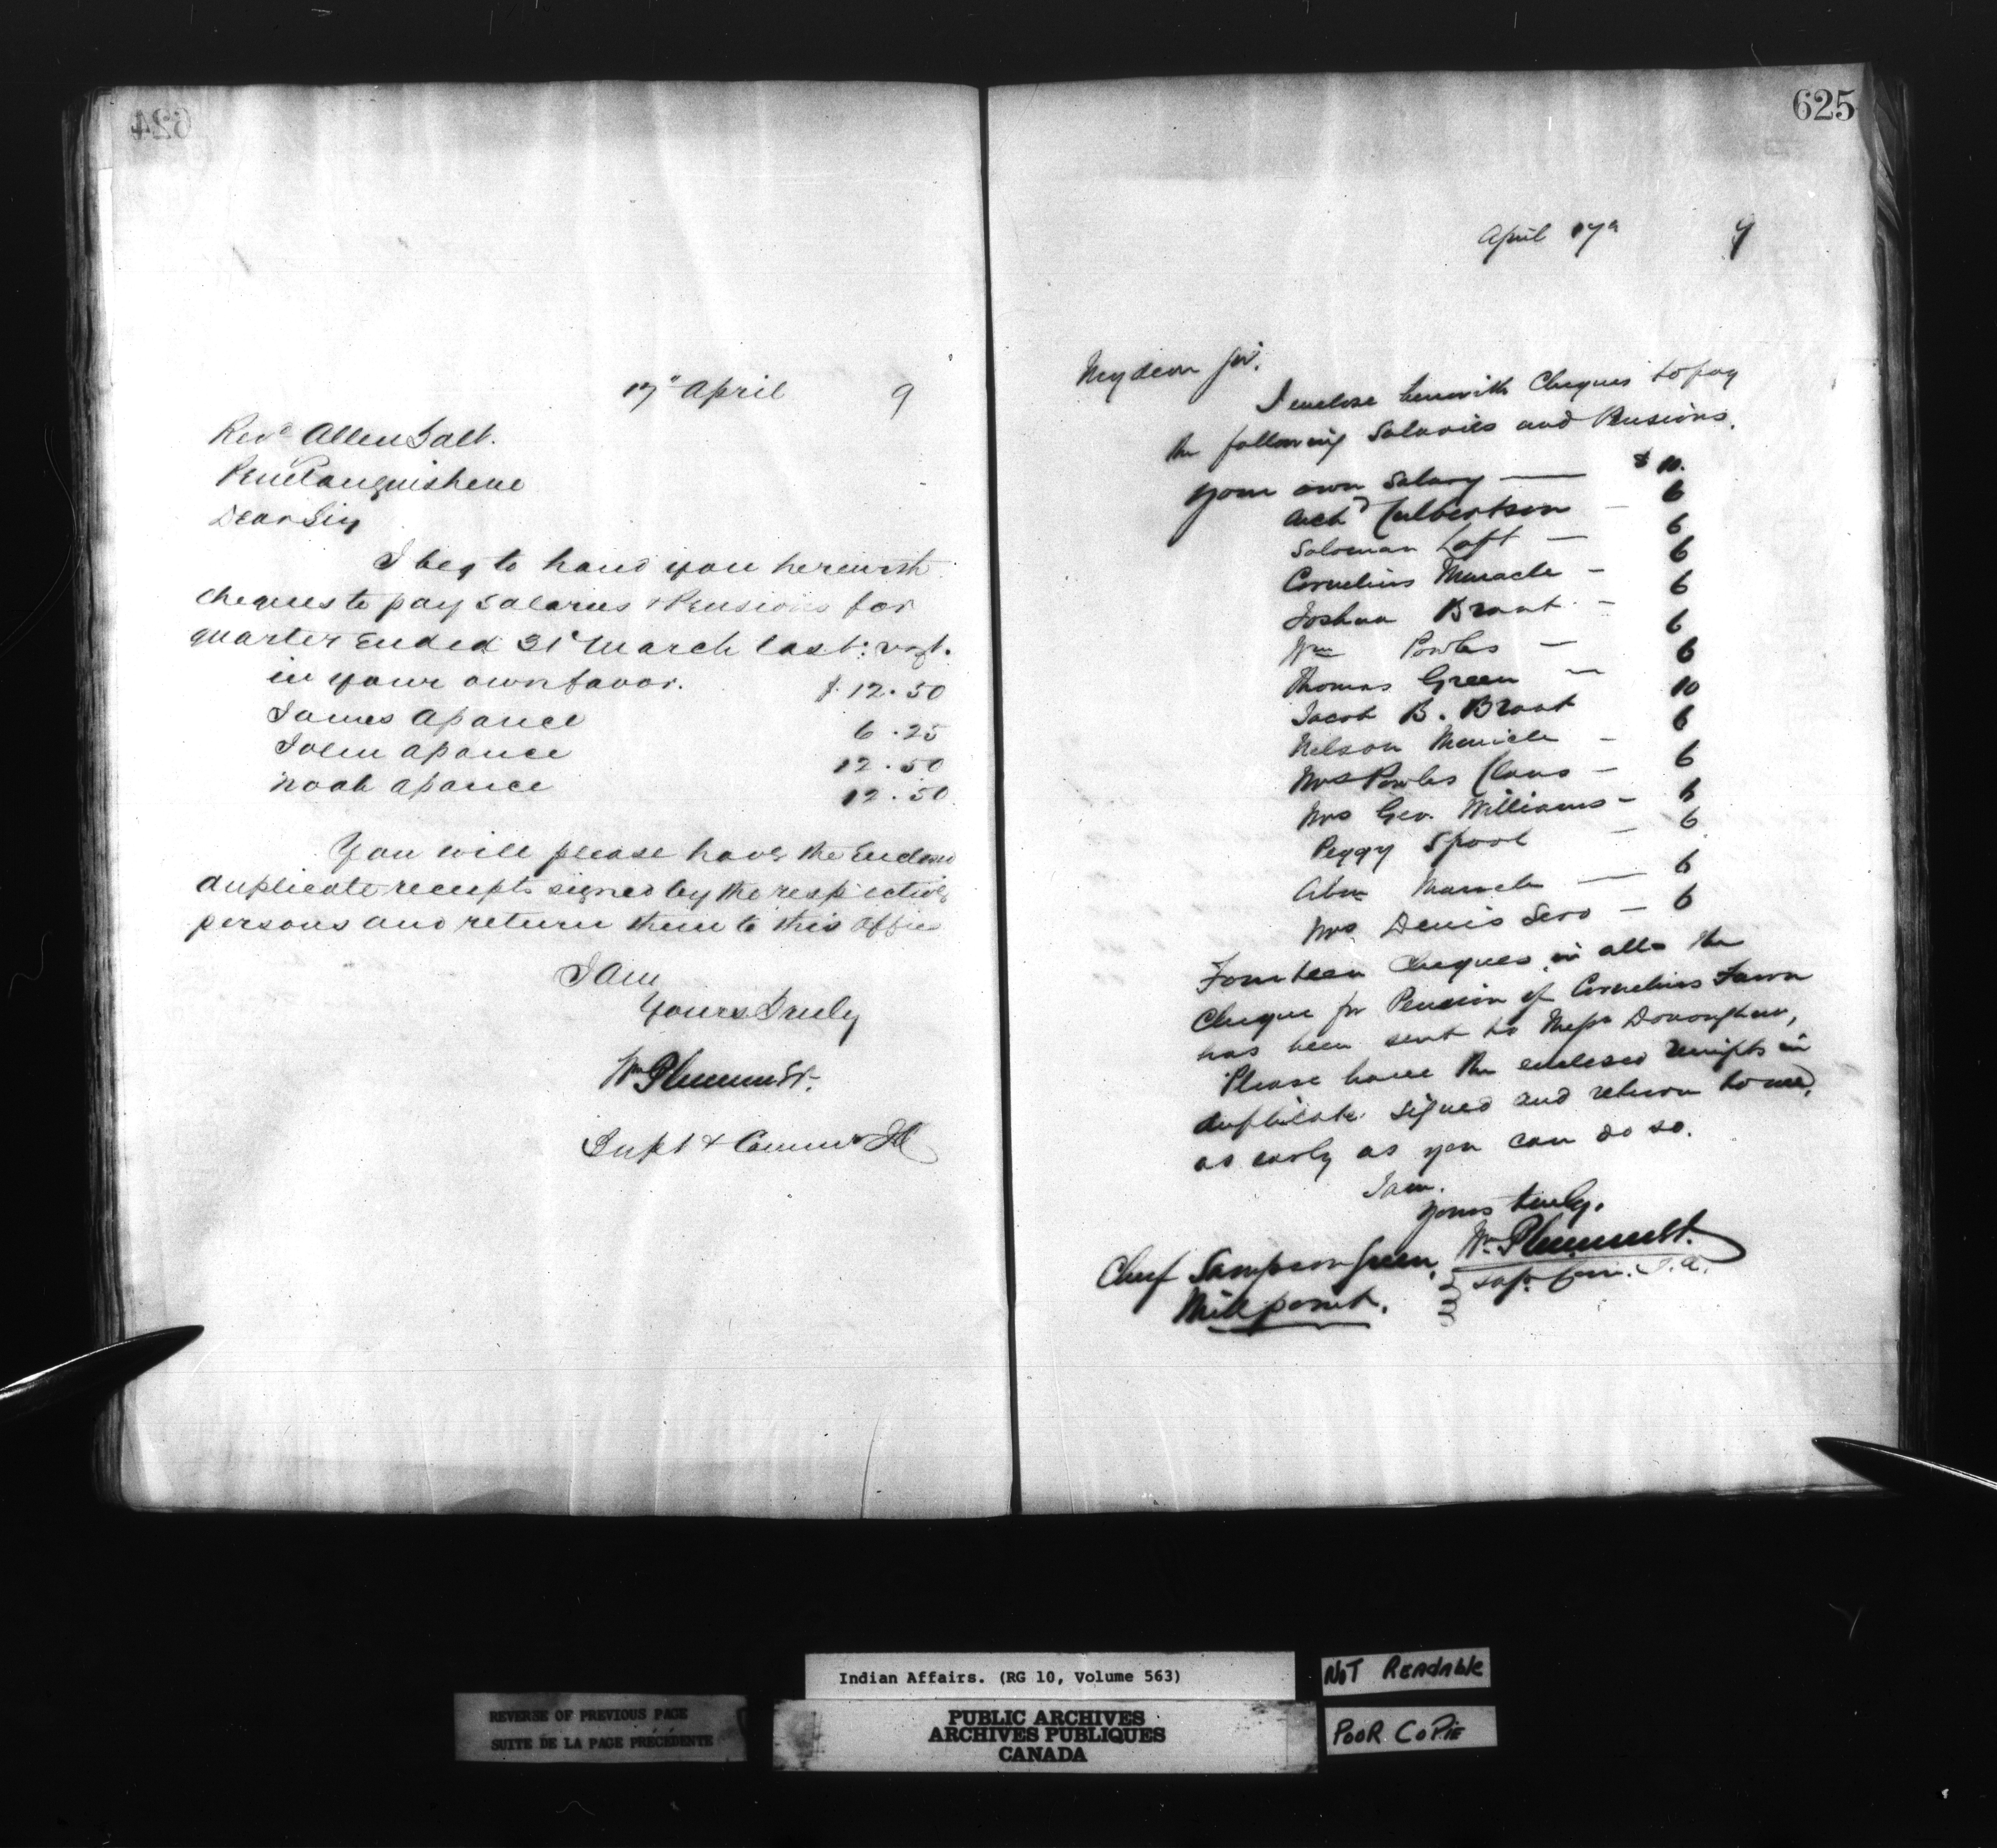 624
17" April 9
Revd Allen Salt.
Penetanguishene
Dear Sir
I beg to hand you herewith
cheques to pay Salaries & Pensions for
quarter Ended 31st March last: vizt.
in your own favor. $12.50
James Apance 6.25
John Apance 12.50
Noah Apance 12.50
You will please have the Enclosed
duplicate receipts signed by the respective
persons and return them to this Office
I am
Yours Truly
Wm Plummer.
Supt & Commr
625
April 17th 9
My dear Sir.
I enclose herewith Cheques to pay
the following Salaries and Pensions.
Your own Salary — $10.
Archd Culbertson — 6
Soloman Loft — 6
Cornelius Maracle — 6
Joshua Brant — 6
Wm Powles — 6
Thomas Green — 6
Jacob B. Brant 10
Nelson Maricle — 6
Mrs Powles Claus — 6
Mrs Geo. Williams — 6
Peggy Spool — 6
Abm Maracle — 6
Mrs Denis Sero — 6
Fourteen Cheques in all. The
Cheque for Pension of Cornelius Fawn
has been sent to Messrs Donoghue,
Please have the enclosed receipts in
duplicate signed and return to me,
as early as you can do so.
I am.
Yours truly.
Wm Plummer.
Chief Sampson Green, Supt Com. I.A.
Mill point.
Indian Affairs. (RG 10, Volume 563)
NOT READABLE
REVERSE OF PREVIOUS PAGE
SUITE DE LA PAGE PRÉCÉDENTE
PUBLIC ARCHIVES
ARCHIVES PUBLIQUES
CANADA
POOR COPIE